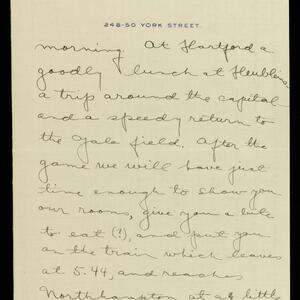 248-50 YORK STREET.
morning. At Hartford a
goodly lunch at Heublins -
a trip around the capital
and a speedy return to
the Yale field. After the
game we will have just
time enough to show you
our rooms, give you a bite
to eat (?), and put you
on the train which leaves
at 5.44, and reaches
Northhampton at a little